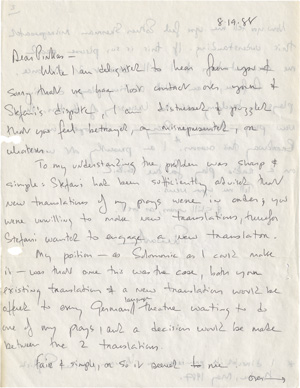 8·19·88
Dear Pinkas —
While I am delighted to hear from you &
sorry that we have lost contact over yours &
Stefani's dispute, I am distressed & puzzled
that you feel betrayed, or misrepresented, or
whatever.
To my understanding the problem was sharp &
simple: Stefani had been sufficiently advised that
new translations of my plays were in order; you
were unwilling to make new translations; therefor
Stefani wanted to engage a new translator.
My position — as Solomonic as I could make
it — was that once this was the case, both your
existing translation & a new translation would be
offered to every German language theatre wanting to do
one of my plays, and a decision would be made
between the 2 translations.
Fair & simple, or so it seemed to me.
over